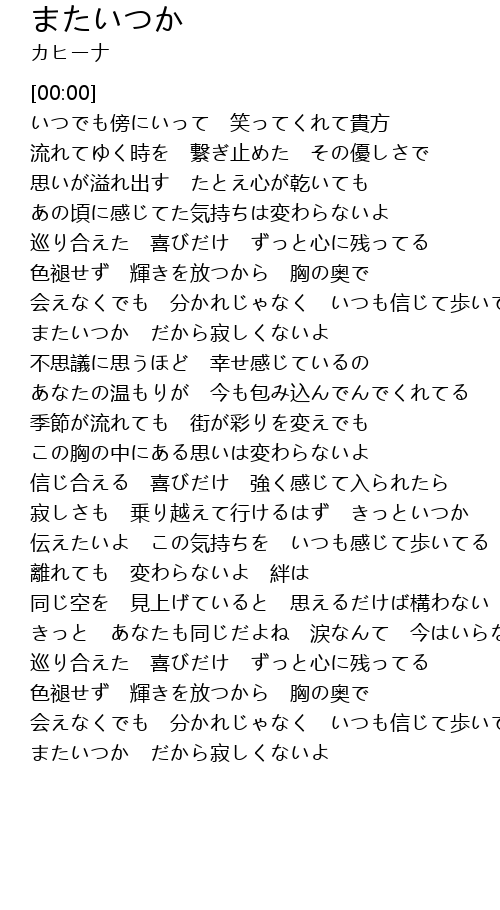 またいつか
カヒーナ
[00:00]
いつでも傍にいって　笑ってくれて貴方
流れてゆく時を　繋ぎ止めた　その優しさで
思いが溢れ出す　たとえ心が乾いても
あの頃に感じてた気持ちは変わらないよ
巡り合えた　喜びだけ　ずっと心に残ってる
色褪せず　輝きを放つから　胸の奥で
会えなくでも　分かれじゃなく　いつも信じて歩いて
またいつか　だから寂しくないよ
不思議に思うほど　幸せ感じているの
あなたの温もりが　今も包み込んでんでくれてる
季節が流れても　街が彩りを変えでも
この胸の中にある思いは変わらないよ
信じ合える　喜びだけ　強く感じて入られたら
寂しさも　乗り越えて行けるはず　きっといつか
伝えたいよ　この気持ちを　いつも感じて歩いてる
離れても　変わらないよ　絆は
同じ空を　見上げていると　思えるだけば構わない
きっと　あなたも同じだよね　涙なんて　今はいらな
巡り合えた　喜びだけ　ずっと心に残ってる
色褪せず　輝きを放つから　胸の奥で
会えなくでも　分かれじゃなく　いつも信じて歩いて
またいつか　だから寂しくないよ